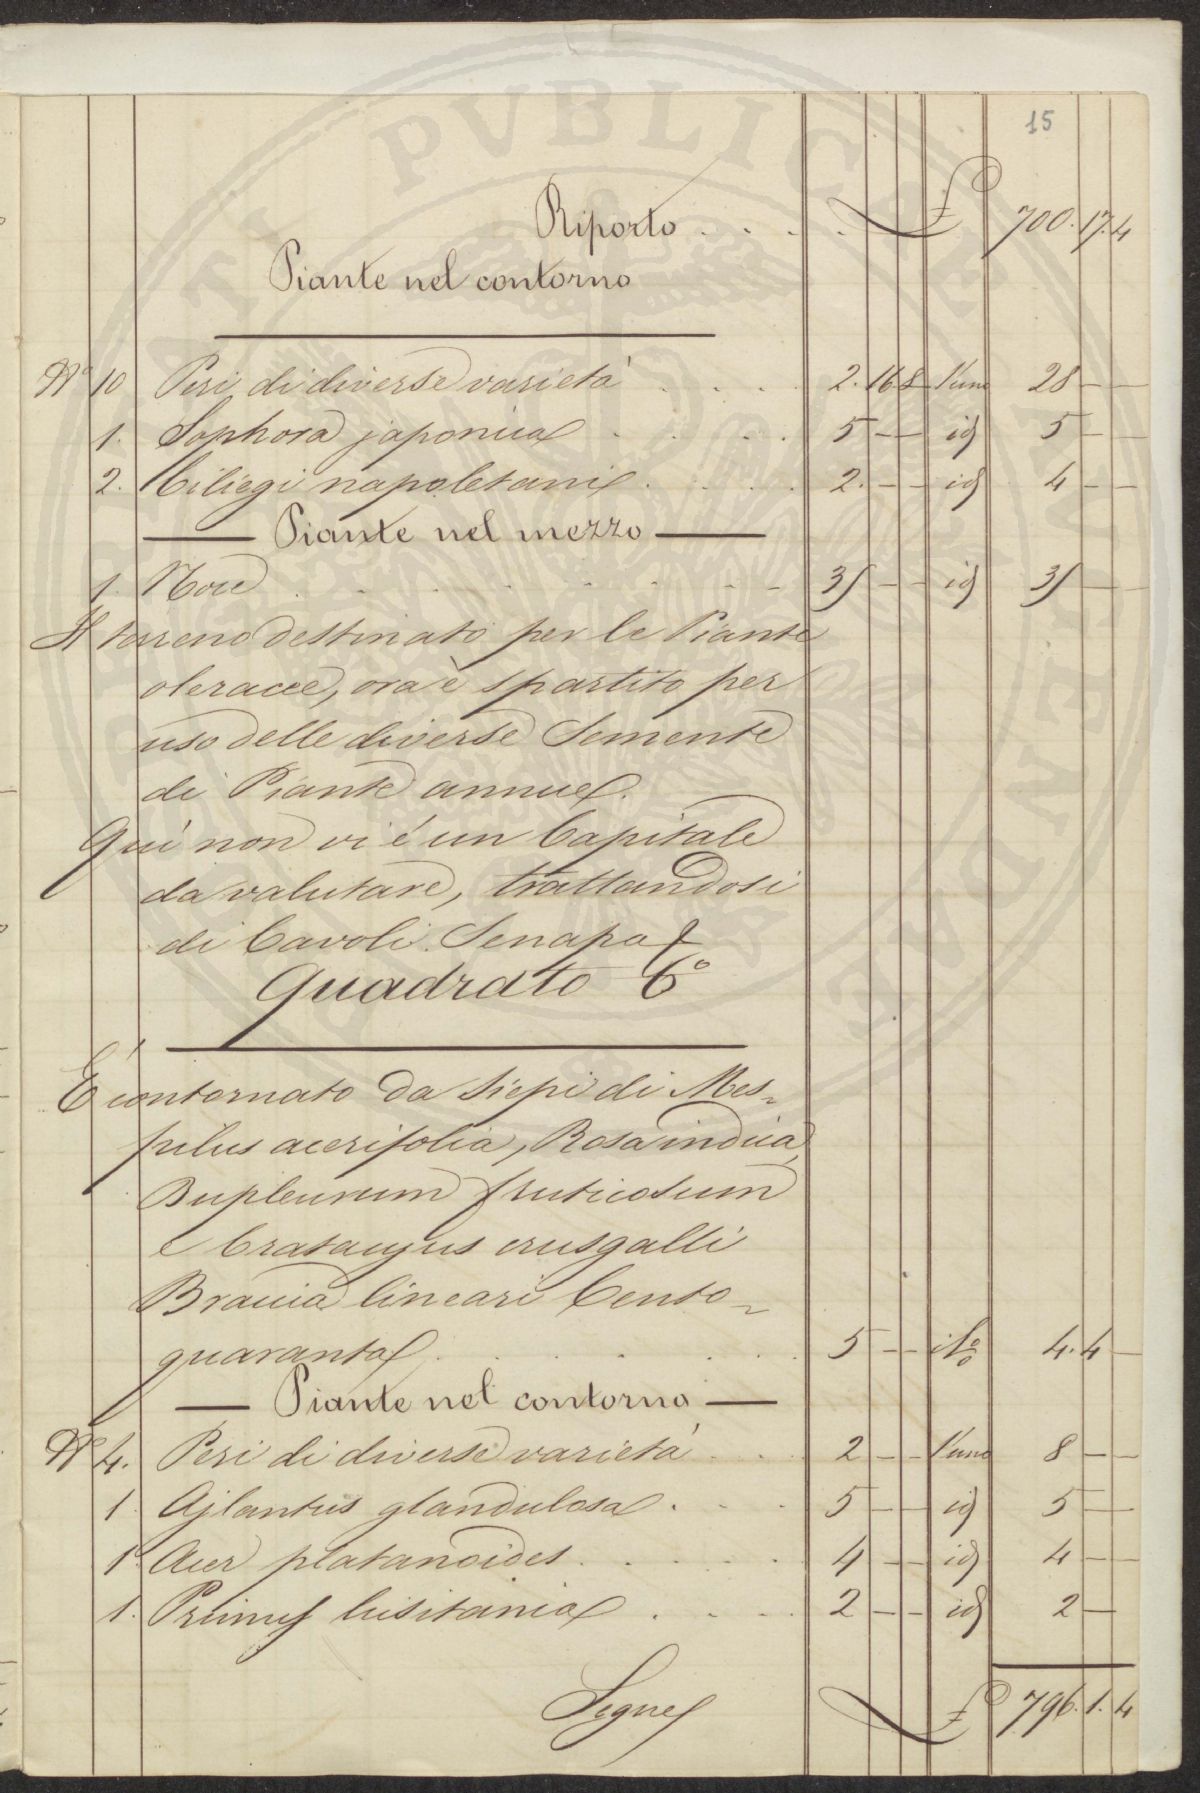 15
Riporto . . . . . £ 700.17.4
Piante nel contorno
N.º 10 Peri di diverse varietà . . . . 2.16.8 l'uno 28 — —
1. Sophora japonica . . . . 5 — — id 5 — —
2. Ciliegi napoletani . . . . 2. — — id 4 — —
Piante nel mezzo
1. Noce . . . . . . . . 35 — — id 35 — —
Il terreno destinato per le Piante
oleracee, ora è spartito per
uso delle diverse Semente
di Piante annue.
Quì non vi é un Capitale
da valutare, trattandosi
di Cavoli. Senapa
Quadrato 6º
É contornato da siepi di Mes=
pilus acerifolia, Rosa indica,
Bupleurum fruticosum
e Crataegus crusgalli
Braccia lineari Cento=
quaranta . . . . . . . 5 — — il % 4.4 —
Piante nel contorno
Nº 4. Peri di diverse varietà . . . 2 — — l'uno 8 — —
1. Ajlantus glandulosa . . . 5 — — id 5 — —
1. Acer platanoides . . . . . 4 — — id 4 — —
1. Prunus lusitanica . . . . 2 — — id 2 —
Segue £ 796.1.4
PVBLICA